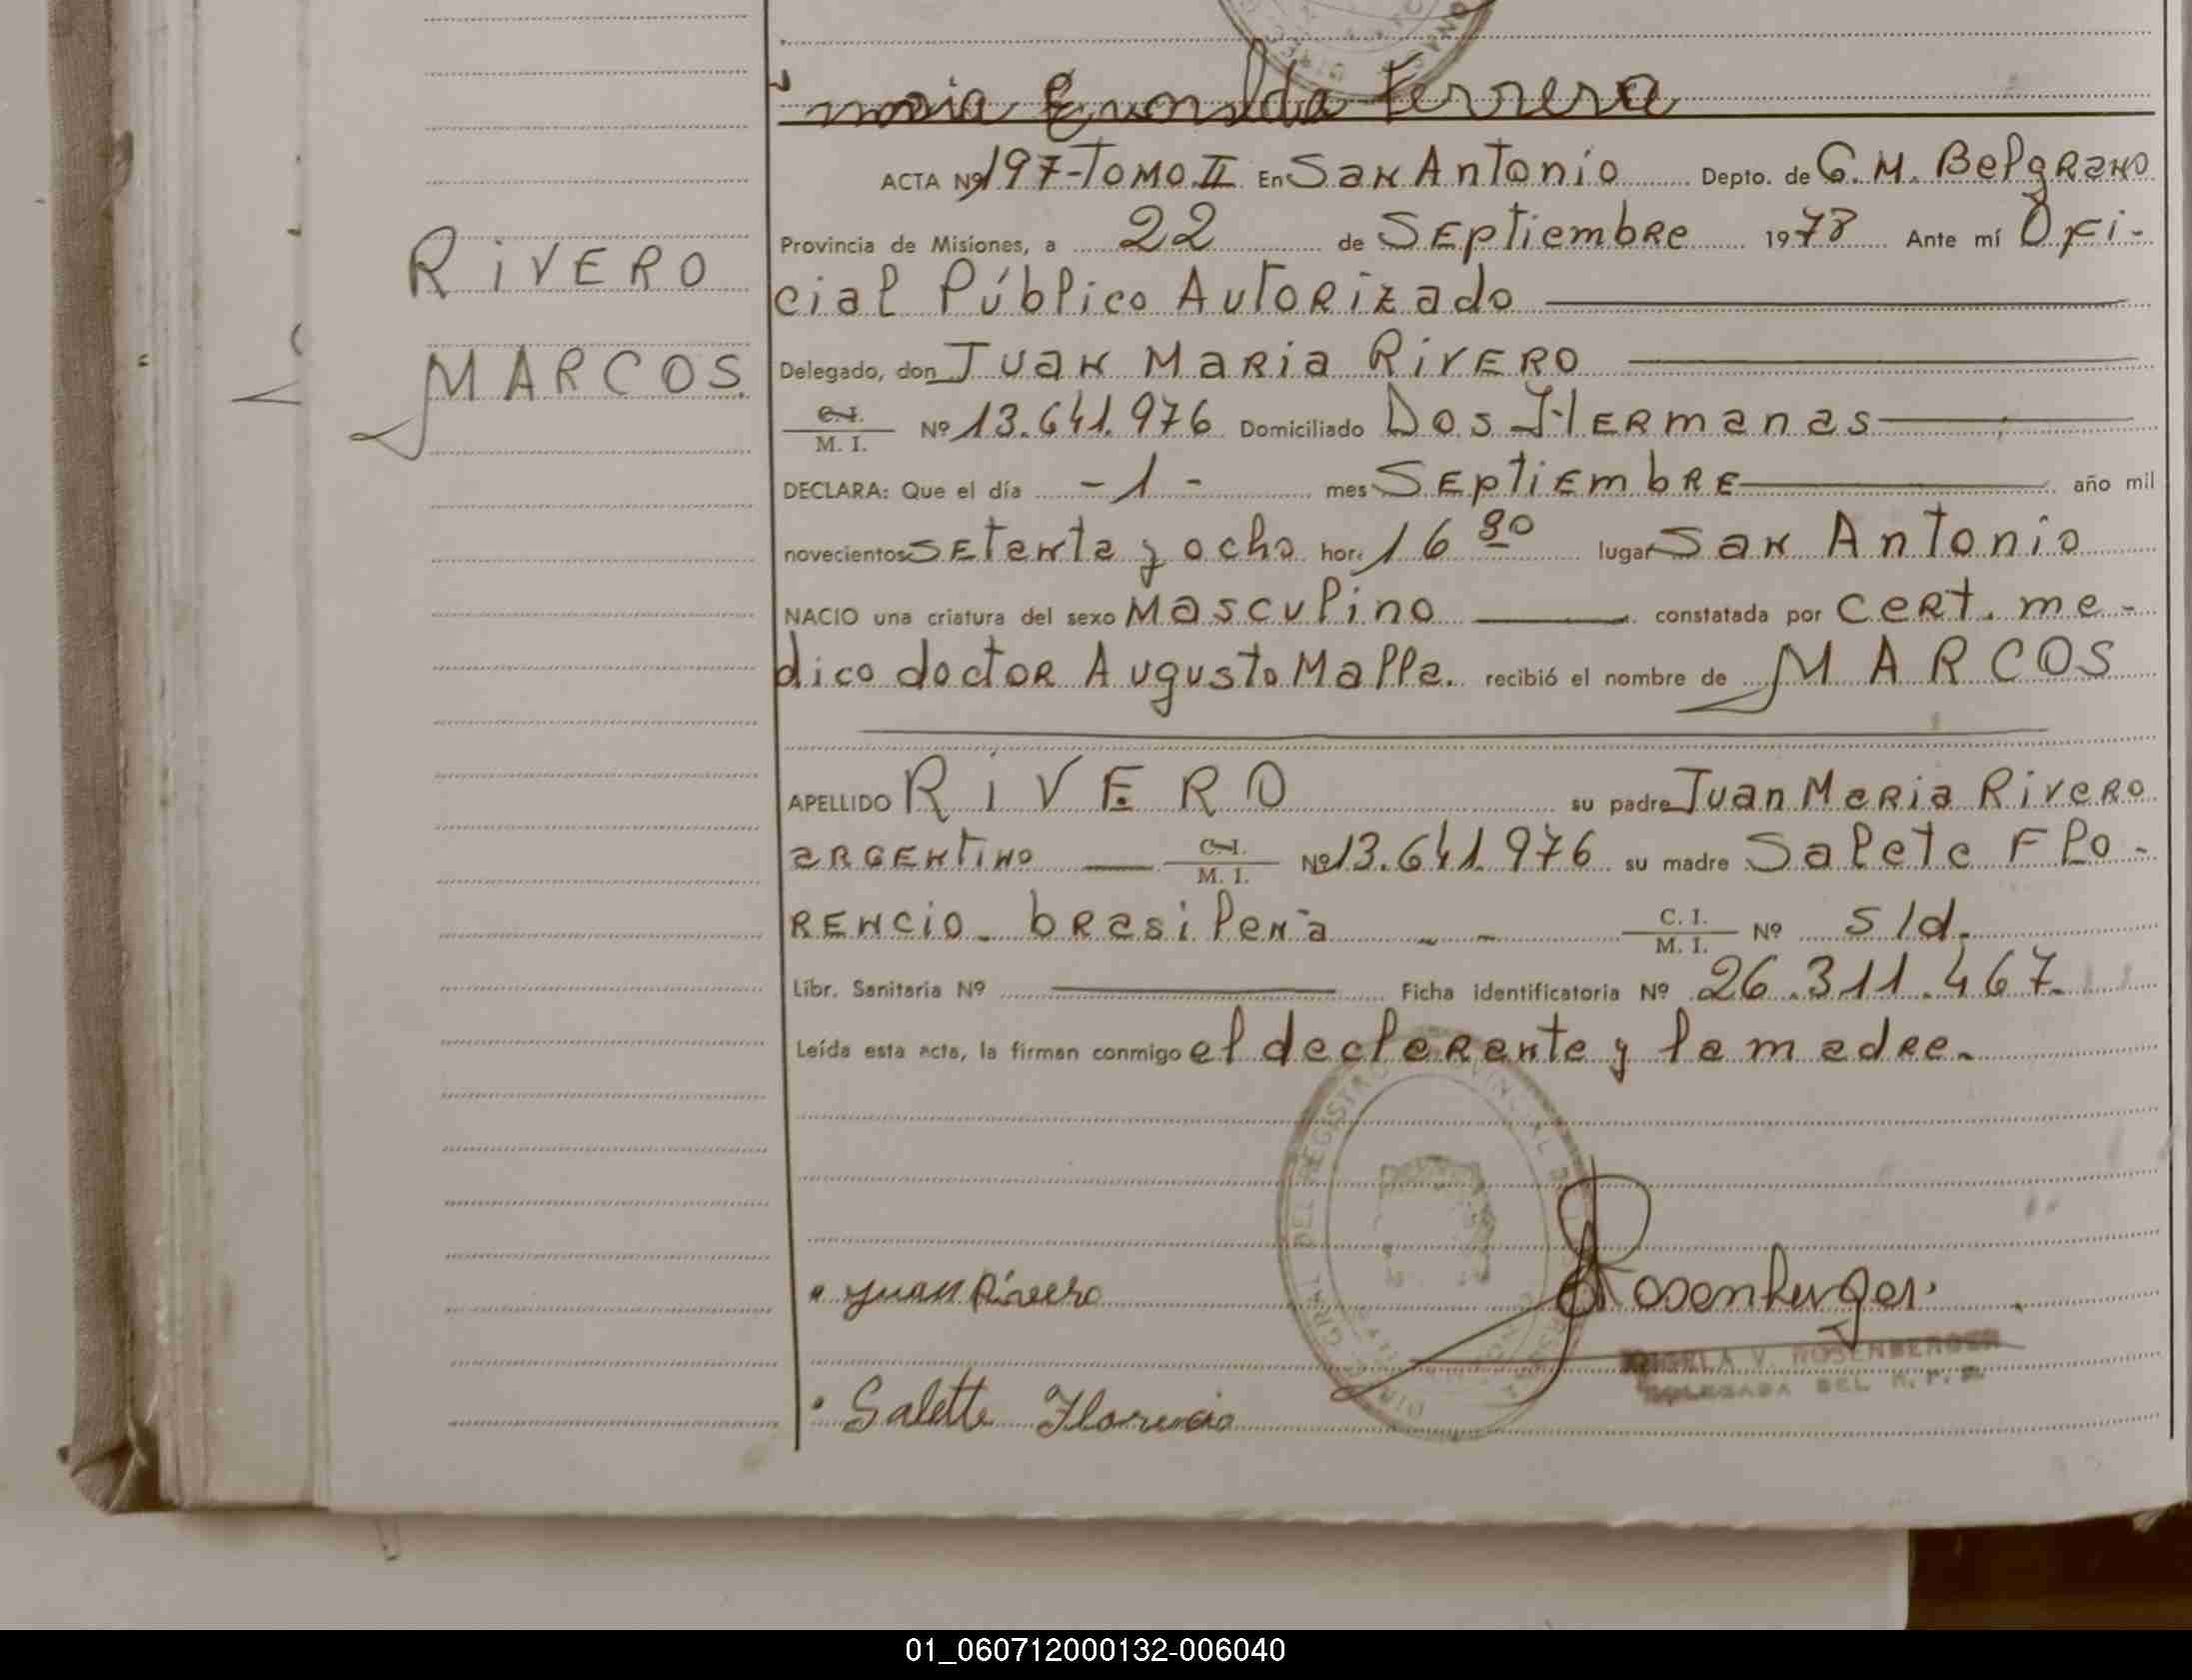 Ferrera
ACTA Nº 197-Tomo II En San Antonio Depto. de G. M. Belgrano
Provincia de Misiones, a 22 de Septiembre 1978 Ante mí Ofi-
cial Público Autorizado
Delegado, don Juan Maria Rivero
RIVERO
MARCOS
C. I.
M. I. Nº 13.641.976 Domiciliado Dos Hermanas
DECLARA: Que el día - 1 - mes Septiembre año mil
novecientos setenta y ocho hor. 16 30 lugar San Antonio
NACIO una criatura del sexo Masculino constatada por cert. me-
dico doctor Augusto Malla. recibió el nombre de MARCOS
APELLIDO RIVERO su padre Juan Maria Rivero
argentino C. I. M. I. Nº 13.641.976 su madre Salete Flo-
rencio - brasileña - - C. I. M. I. Nº s/d.
Libr. Sanitaria Nº Ficha identificatoria Nº 26.311.467.
Leída esta acta, la firman conmigo el declarante y la madre.
Juan Rivero
Rosenberger
V. ROSENBERGER
DELEGADA DEL R. P. P.
Salette Florencio
01_060712000132-006040